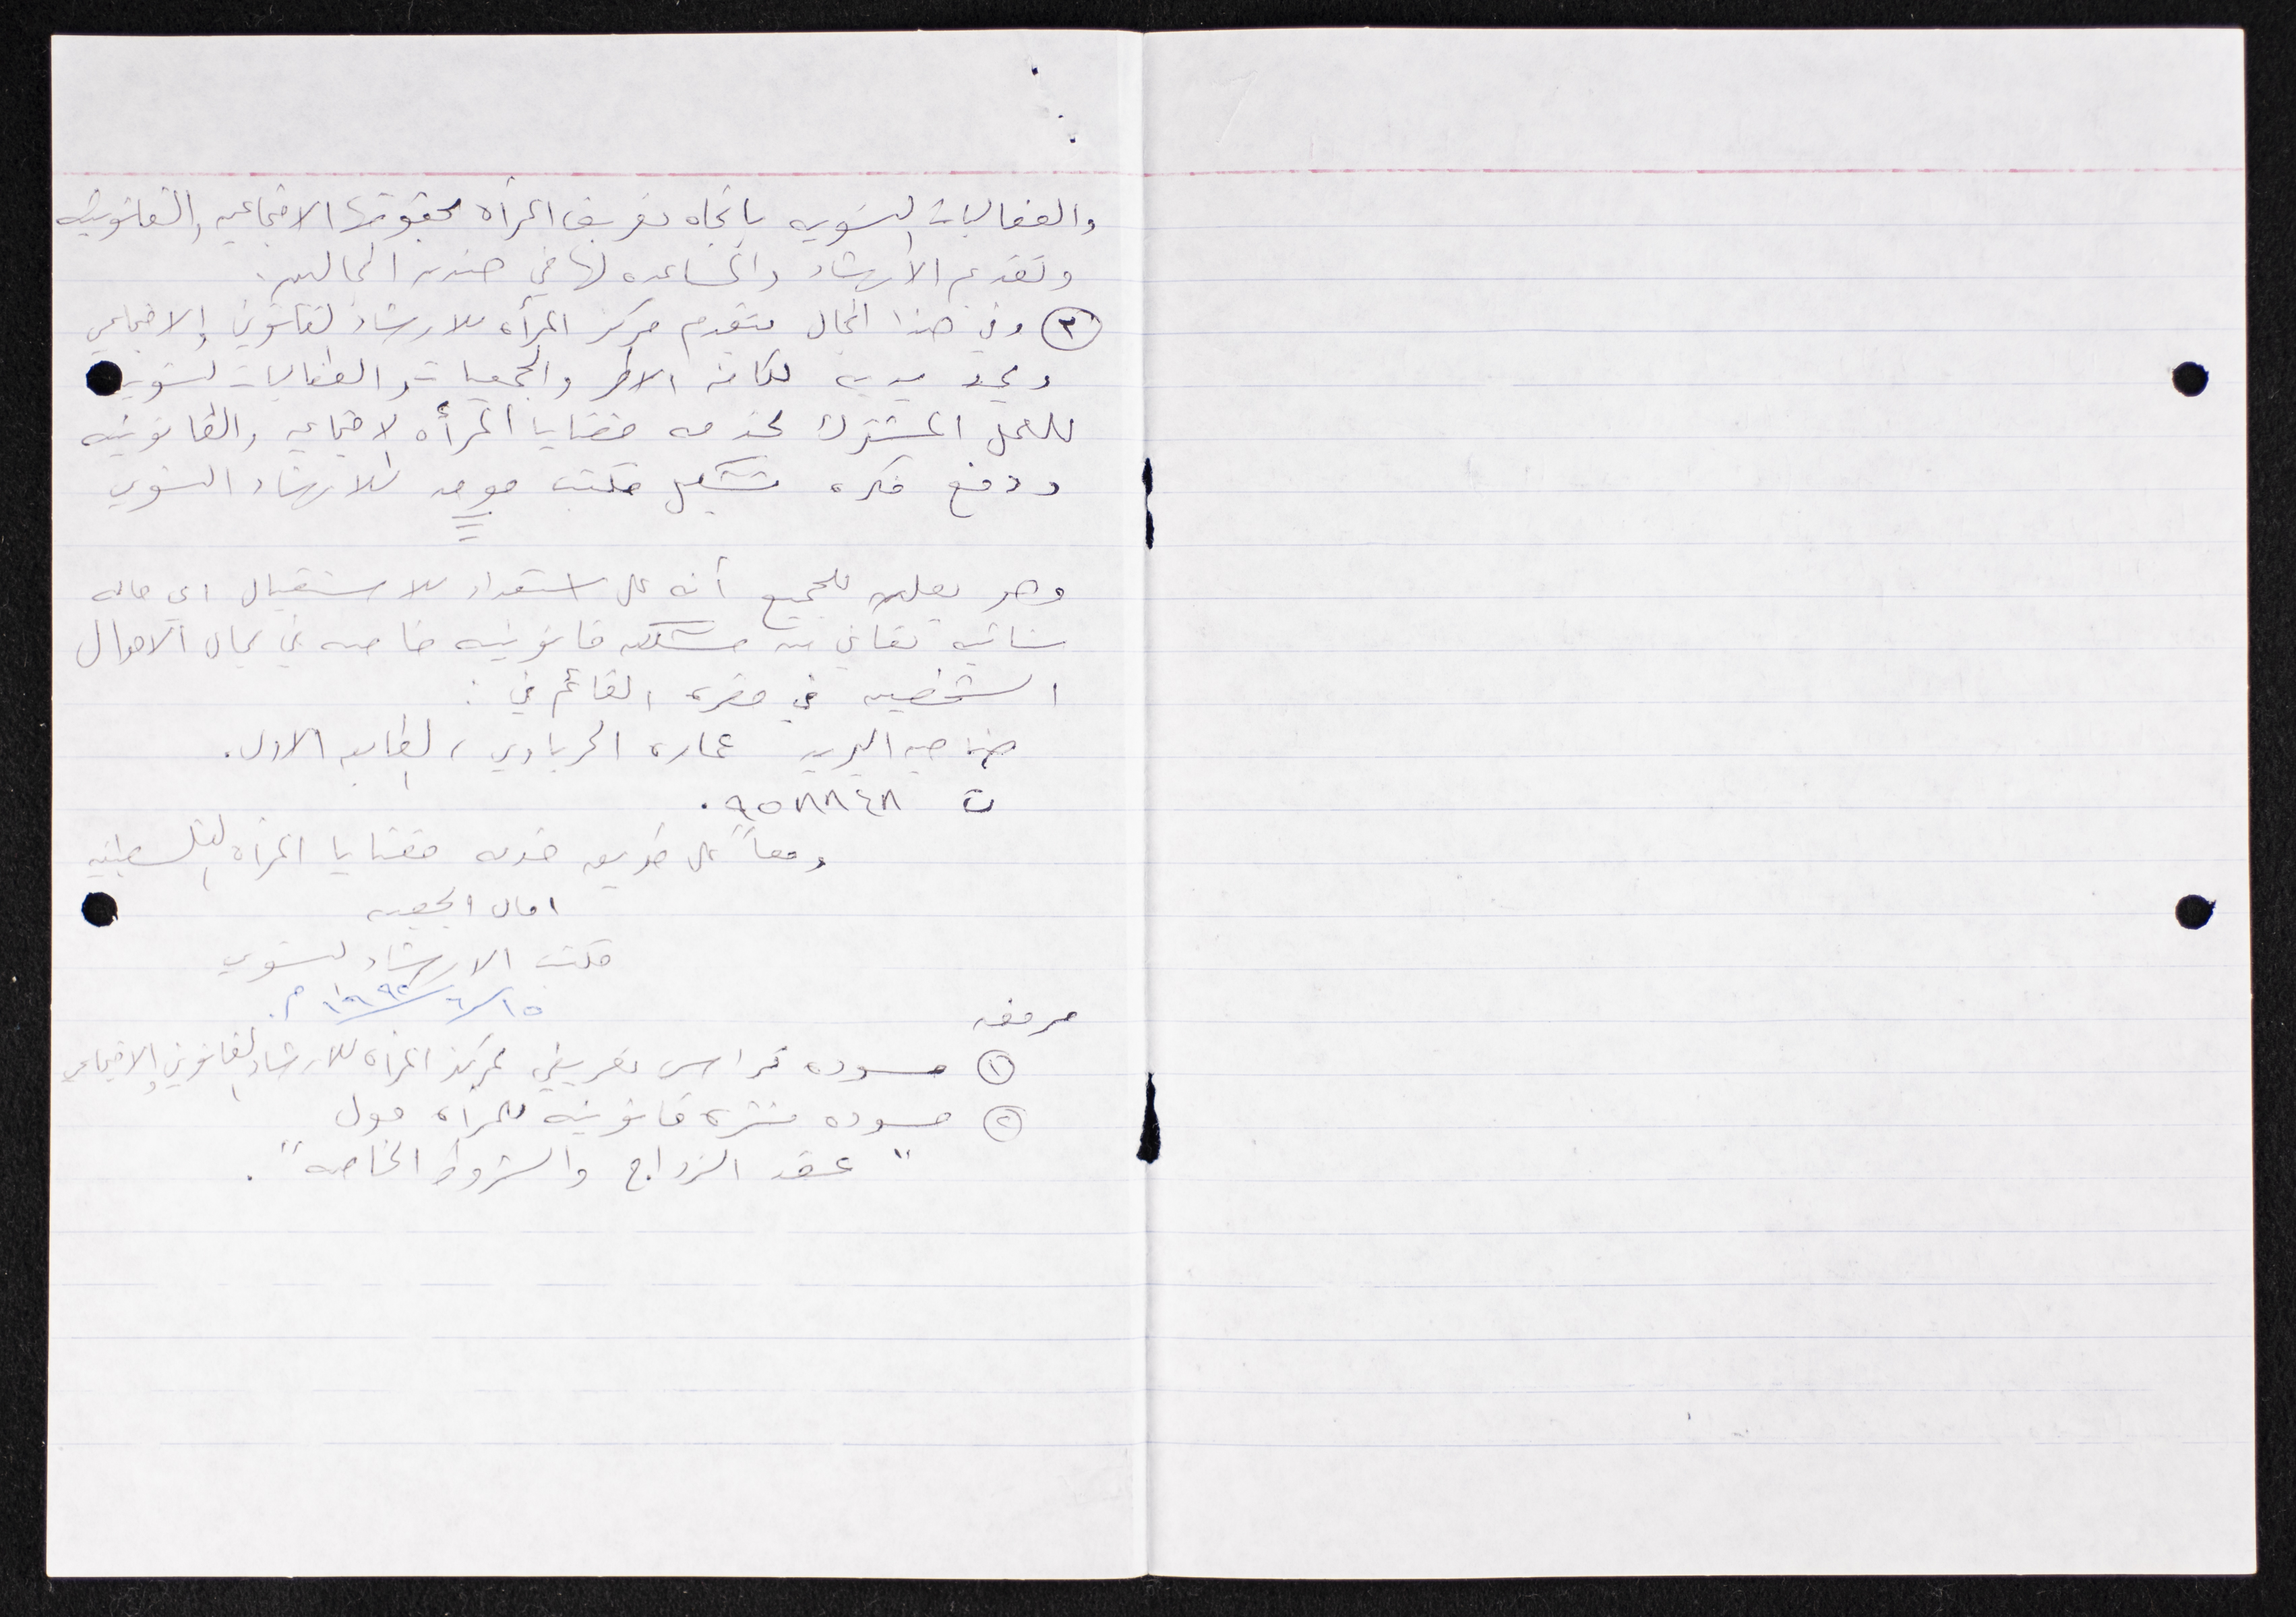 والفعاليات النسويه باتجاه تعريف المرأه بحقوقها الاجتماعيه والقانونيه
وتقديم الارشاد والمساعده لها في هذين المجالين.
٣ وفي هذا المجال يتقدم مركز المرأه للارشاد القانوني والاجتماعي
ويمد يديه لكافه الاطر والجمعيات والفعاليات النسويه
للعمل المشترك لخدمه قضايا المرأه الاجتماعيه والقانونيه
ودفع فكره تشكيل مكتب موحد للارشاد النسوي
وهو يعلن للجميع أنه على استعداد للاستقبال اي حاله
نسائيه تعاني من مشكله قانونيه خاصه في مجال الاحوال
الشخصيه في مقره القائم في :
ضاحيه البريد عماره الحرباوي، الطابق الاول.
ت ٩٥٨٨٤٨ .
ومعاً على طريق خدمه قضايا المرأه الفلسطينيه
امال الجعبه
مكتب الارشاد النسوي
١٥/٦/١٩٩٢ م.
مرفق
١ مسوده كراس تعريفي لمركز المرأه للارشاد القانوني والاجتماعي
٢ مسوده نشره قانونيه للمرأه حول
" عقد الزواج والشروط الخاصه" .